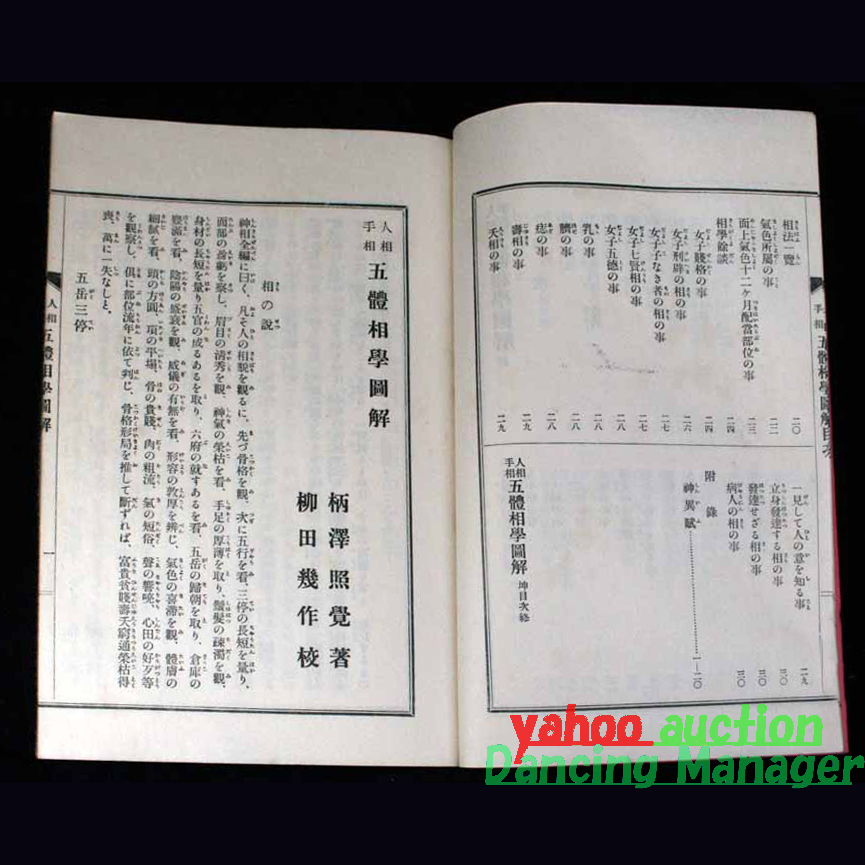 人相手相 五體相學圖解目次
相法一覽 二〇
氣色所屬の事 二二
面上氣色十二ヶ月配當部位の事 二三
相學餘談 二四
女子賤格の事 二四
女子刑辟の相の事 二六
女子子なき者の相の事 二七
女子七賢相の事 二七
女子五德の事 二八
乳の事 二八
臍の事 二八
痣の事 二八
壽相の事 二九
夭相の事 二九
一見して人の意を知る事 二九
立身發達する相の事 三〇
發達せざる相の事 三〇
病人の相の事 三〇
附錄
神異賦 一―二〇
人相手相 五體相學圖解 坤目次終
人相手相 五體相學圖解
柄澤照覺著
柳田幾作校
相の說
神相全編に曰く、凡そ人の相貌を觀るに、先づ骨格を觀、次に五行を看、三停の長短を量り、
面部の盈虧を察し、眉目の清秀を觀、神氣の榮枯を看、手足の厚薄を取り、鬚髮の疎濁を觀、
身材の長短を量り五官の成るあるを取り、六府の就すあるを看、五岳の歸朝を取り、倉庫の
豐滿を看、陰陽の盛衰を觀、威儀の有無を看、形容の敦厚を辨じ、氣色の喜滯を觀、體膚の
細膩を看、頭の方圓、項の平塌、骨の貴賤、肉の粗流、氣の短俗、聲の響喨、心田の好歹等
を觀察し、俱に部位流年に依て判じ、骨格形局を推して斷ずれば、富貴貧賤壽夭窮通榮枯得
喪、萬に一失なしと。
五岳三停
人相 五體相學圖解
一
yahoo auction
Dancing Manager